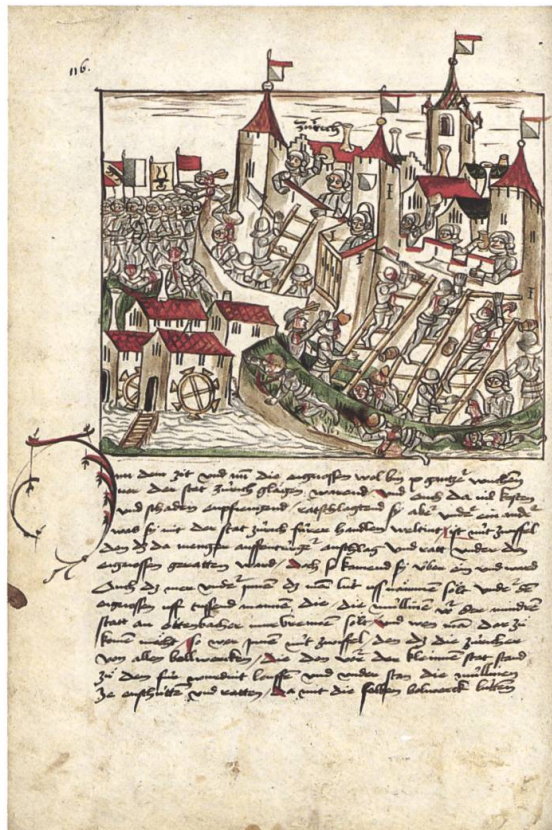 116.
zürich
In dem zit und nun die eignossen wol by x gantzer wuchen
vor der stat zürich glägen warend und ouch da vil kosten
und schaden empfiengend / ratschlagtend sy aber under ein ander
was sy mit der stat zürich fürer handlen weltint / ist nüt zwiffel
den dz da menger anschlag und ratt under den
eignossen geratten ward / doch so kamend sy über ein und ward
Ouch dz mer under jnen dz man lüt uss nämen sölt under den
eignossen uff tussend mannen die / die müllinen vor der mindren
statt am ottenbacher verbrennen sölt und wen man dar zü
komen möcht / so wer jnen nüt zwiffel den dz die zürcher
von allen bollwercken / die den vor der kleinen stat stand
zü den für louffe und under stan die müllinen
ze entschütte und retten / da mit die selben bolwerck